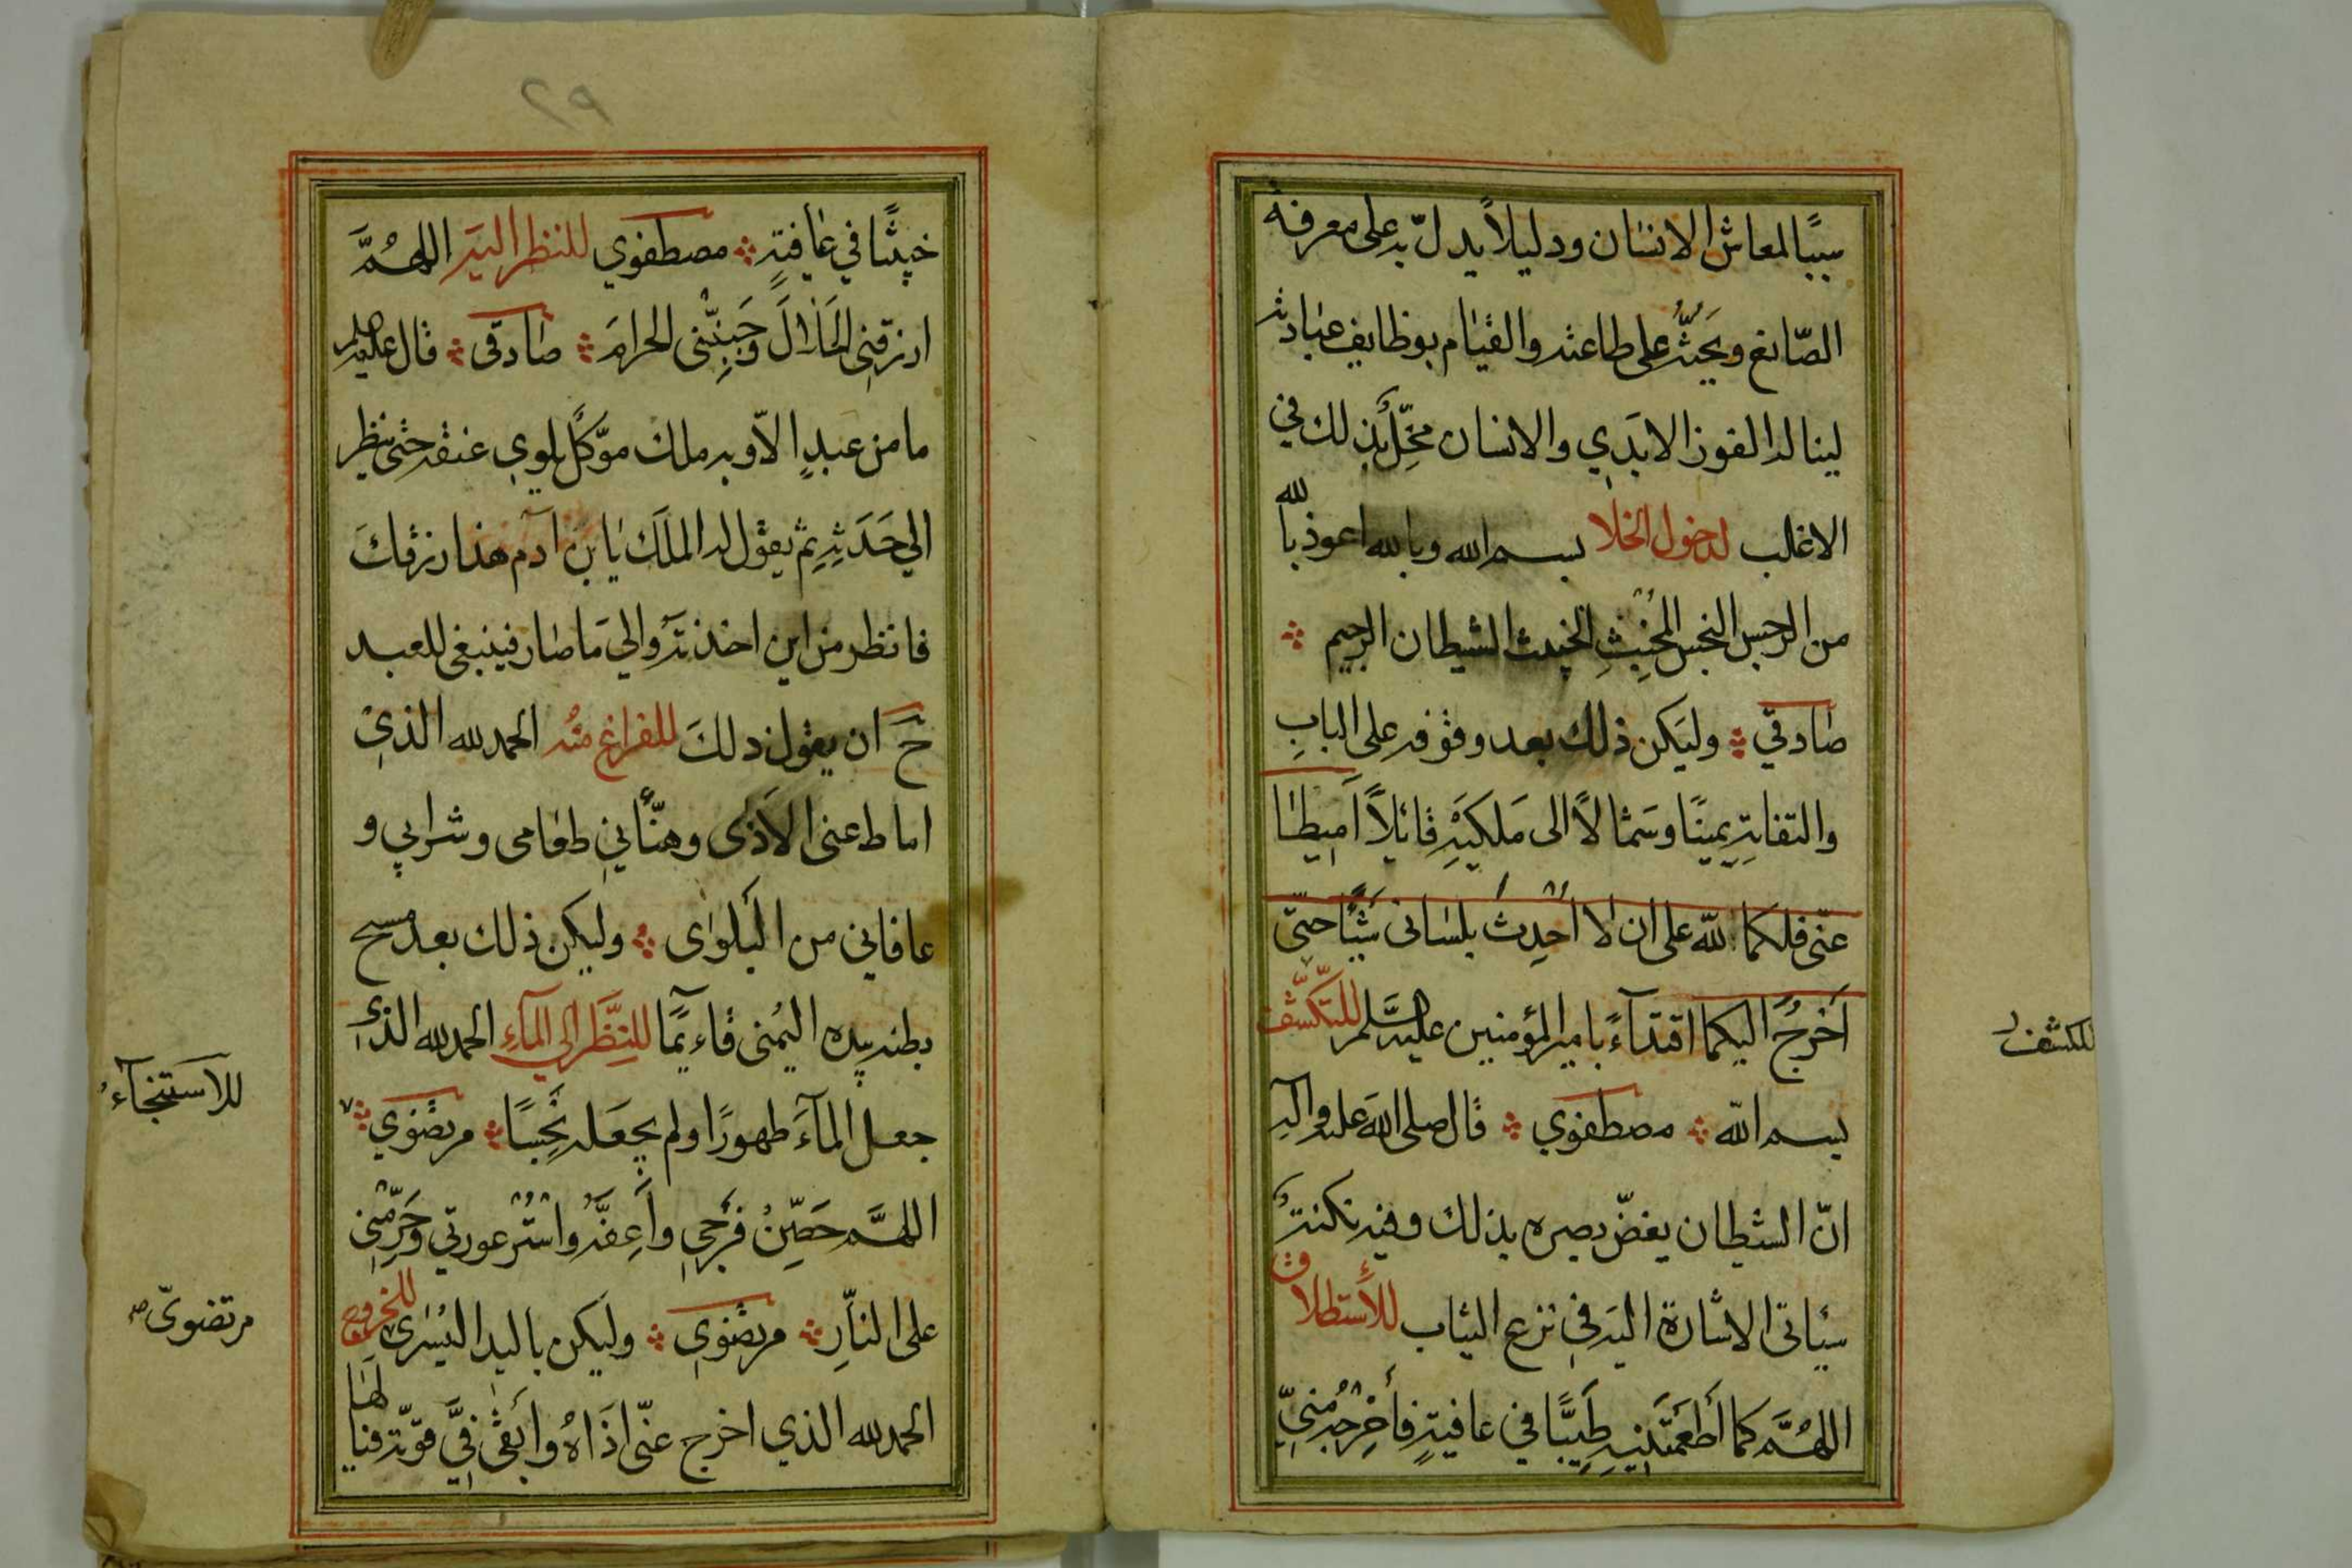 سببًا لمعاش الانسان ودليلاً يدلّ به على معرفة
الصّانع ويَحُثُّ على طاعته والقيام بوظايف عبادته
لينا له الفوز الابدي والانسان مخِلٌّ بذلك في
الاغلب لدخول الخلا بسم الله وبالله اعوذ بالله
من الرجس النجس المُخْبِثِ الخبيث الشيطان الرجيم
صادقي وليكن ذلك بعد وقوفه على البابِ
والتفاتِهِ يمينًا وشمالاً الى مَلكَيْهِ قائلاً اَمِيطا
عنّي فلكما لله على ان لا اُحْدِثَ بلساني شيئًا حتّى
اَخرجُ اليكما اقتدآءً بامير المؤمنين عليه السَّلم للتكشّف
للكشف
بسم الله مصطفوي قال صلى الله عليه واله
انّ الشيطان يغضّ بصره بذلك وفيه نكتةٌ
سياتى الاشارة اليه في نزع الثياب للأستطلاق
اللهُمَّ كما أَطعَمْتَنِيهِ طَيِّبًا في عافيةٍ فأَخْرِجْهُ مِنّي
٢٩
خبيثًا في عافيةٍ مصطفوي للنظر اليه اللهُمَّ
ارزقنِى الحَلالَ وجَنِّبْنى الحرامَ صادقى قال عليه السلم
ما من عبدٍ الاّ وبه ملك موّكلٌ يلوي عنقه حتى ينظر
الي حَدَثِهِ ثم يقول له الملَك يا بن آدم هذا رزقكَ
فانظر من اين اخذتَه والي مَا صار فينبغى للعبد
حَ ان يقول ذلكَ للفراغ منْه الحمد لله الذي
اماط عنى الاَذى وهنّأني طعامى وشرابي و
عافاني من البَلوى وليكن ذلك بعد مسح
بطنه بيده اليُمنى قآءيمًا للنَّظر الي المآءِ الحمد لله الذي
للاستنجآء
جعل المآءَ طهورًا ولم يجعَله نَجِسًا مرتضوي
اللهمَّ حَصِّنْ فَرْجي وأَعِفَّهُ واسْتُرْ عورتي وحَرِّمْني
على النّارِ مرتضوي وليكن باليد اليُسْرى للخروج
مرتضويّ
الحمد لله الذي اخرج عنّى اذَاهُ وأَبقى فيَّ قوّته فيا لهَا